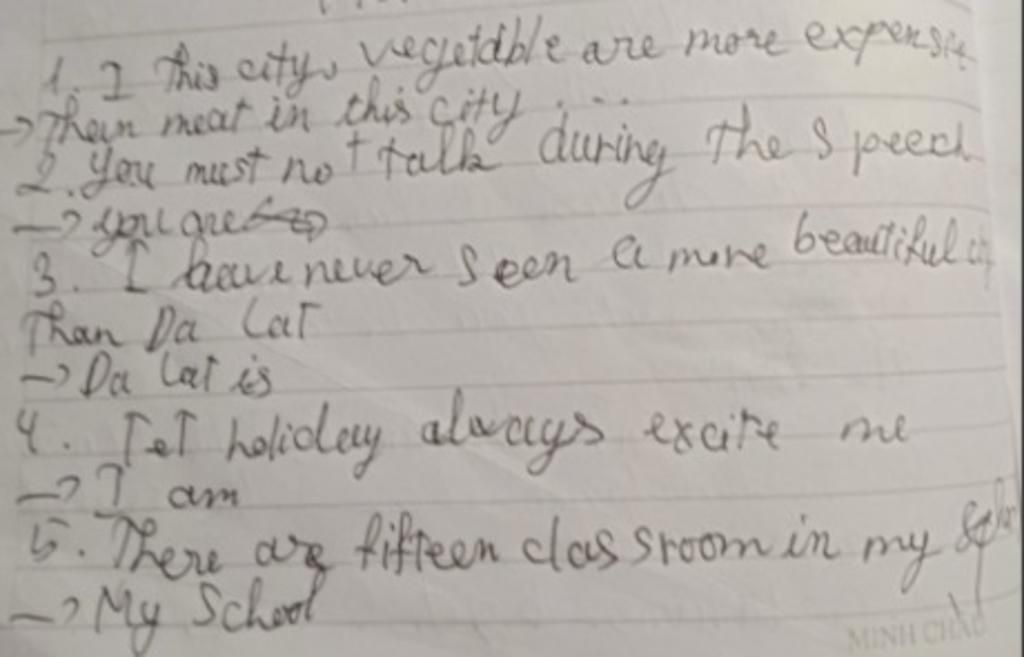 1. I This city, vegetable are more expensie
→ Than meat in this city ....
2. You must not talk during the Speech
→ you are
3. I have never seen a more beautiful
Than Da Lat
→ Da Lat is
4. TeT holiday always excite me
→ I am
5. There are fifteen classroom in my
→ My School
MINH CHÂU